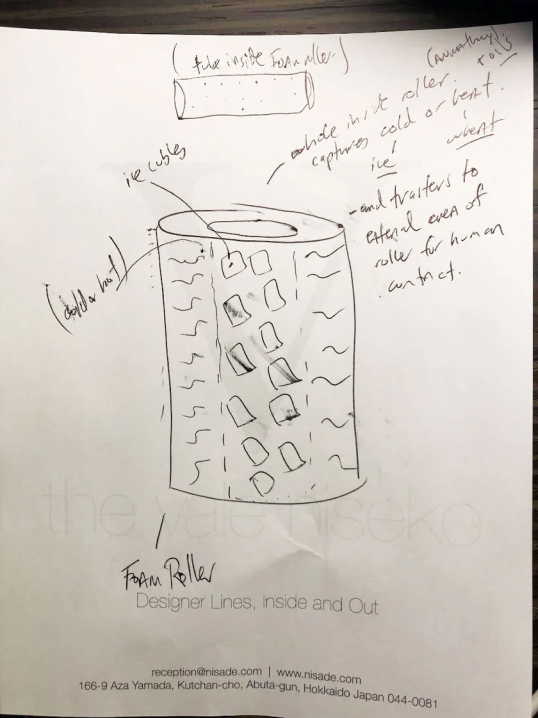 (tube inside Foam roller)
(aromatherapy)
+ oils
hole inside roller.
captures cold or heat.
ice wheat
ice cubes
- and trasfers to
external area of
roller for human
contract.
(cold or hot)
Foam Roller
the vale niseko
Designer Lines, Inside and Out
reception@nisade.com | www.nisade.com
166-9 Aza Yamada, Kutchan-cho, Abuta-gun, Hokkaido Japan 044-0081